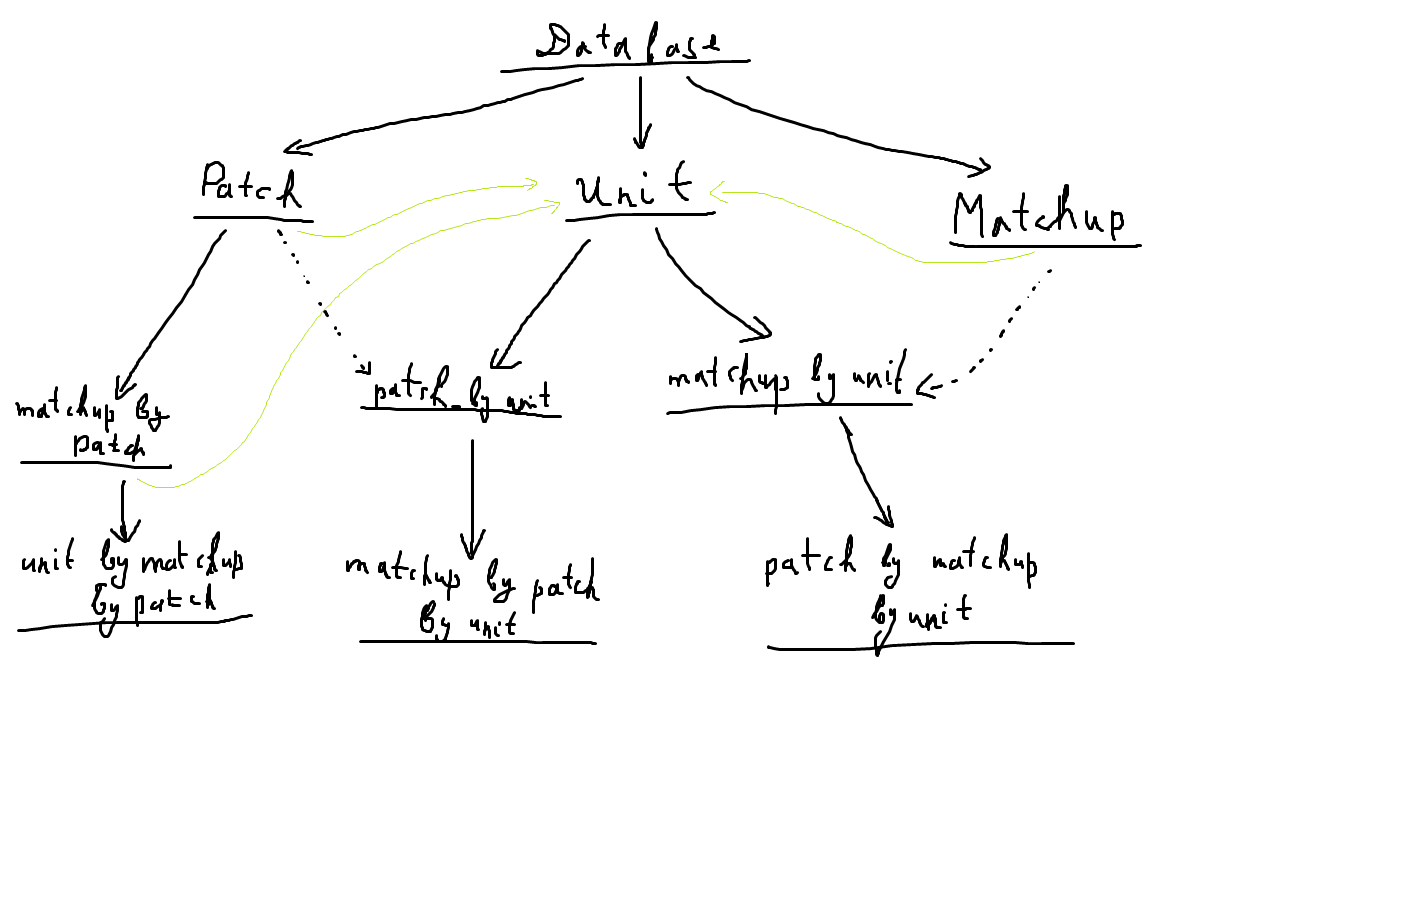 Database
Patch
Unit
Matchup
matchup by
patch
patch_by unit
matchup by unit
unit by matchup
by patch
matchup by patch
by unit
patch by matchup
by unit